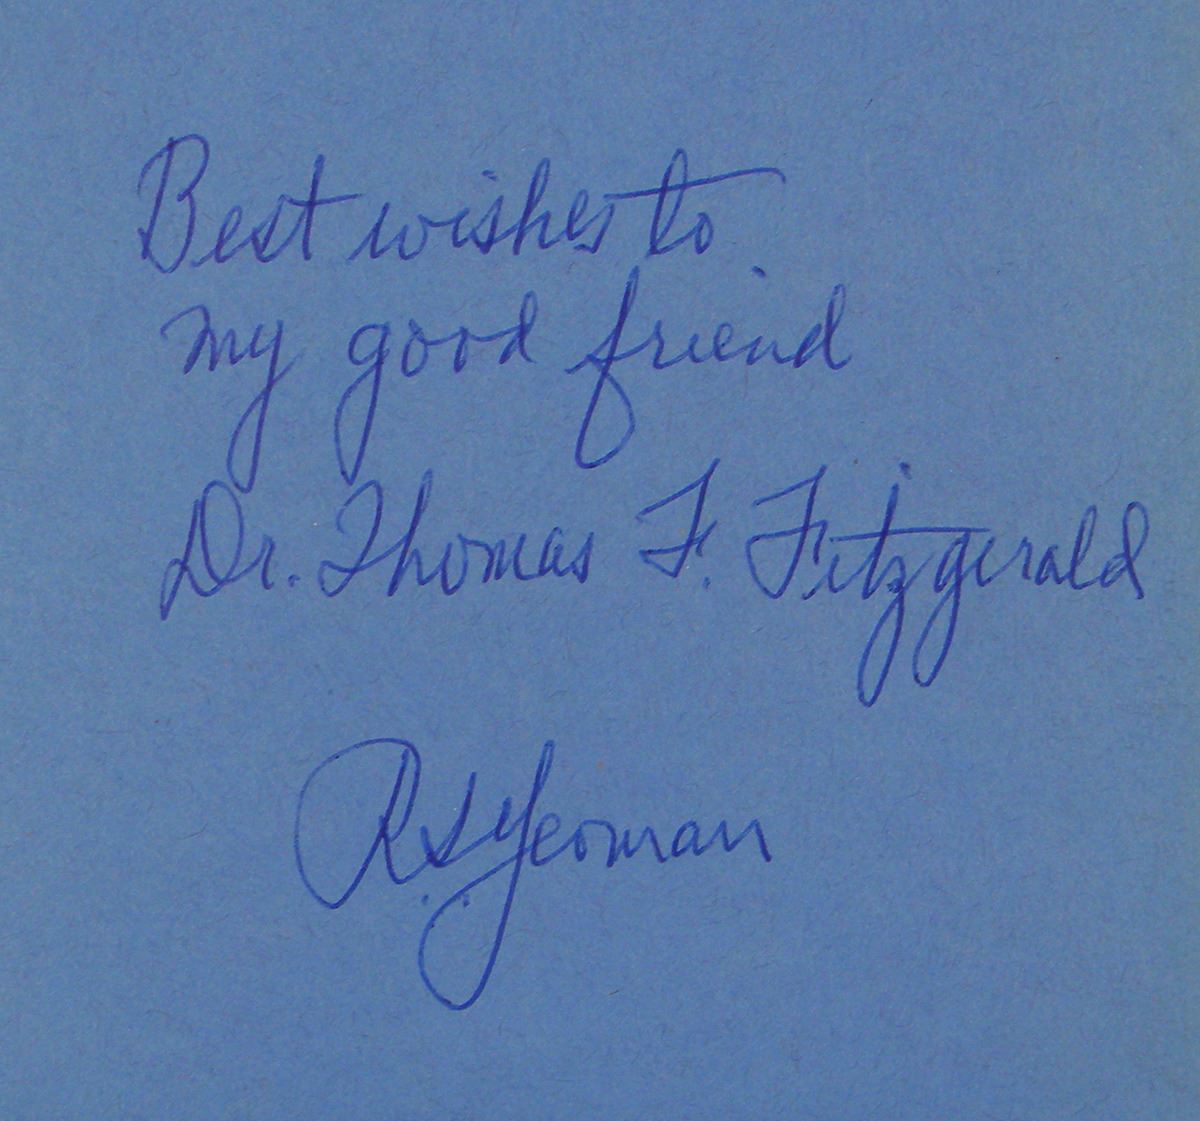 Best wishes to
my good friend
Dr. Thomas F. Fitzgerald
R.S. Yeoman